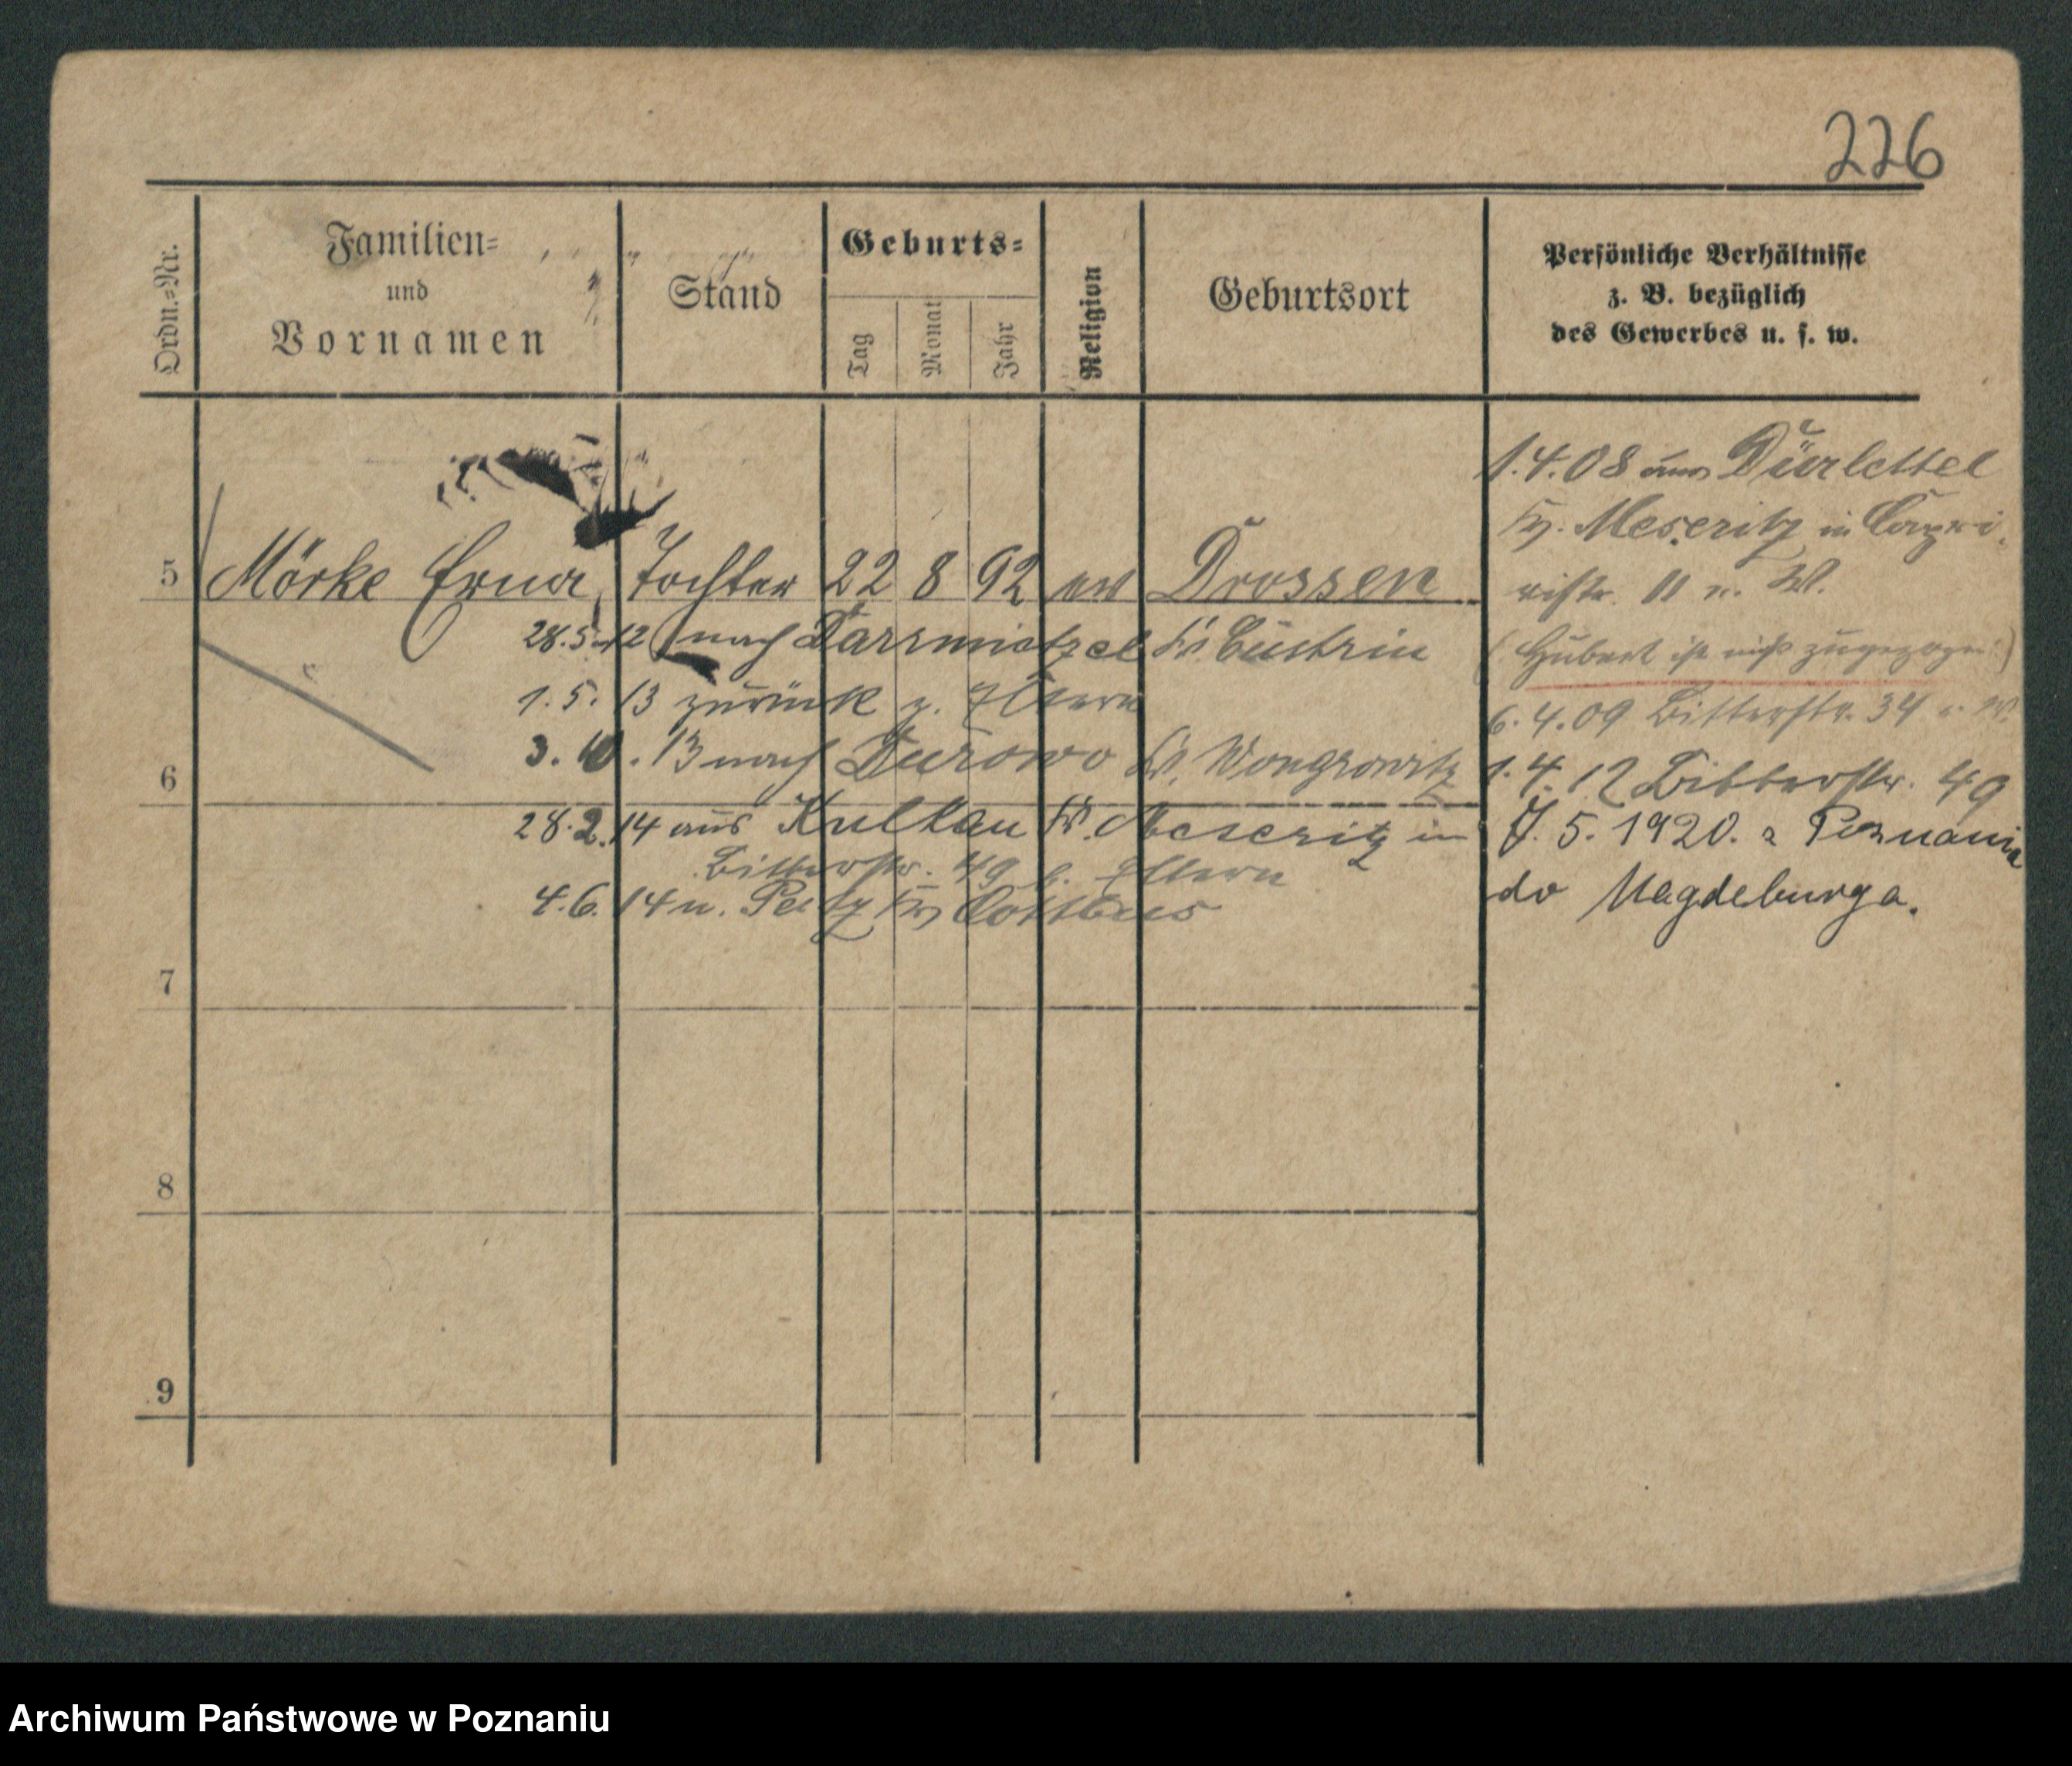 226
Ordn.=Nr.
Familien=
und
Vornamen
Stand
Geburts=
Tag
Monat
Jahr
Religion
Geburtsort
Persönliche Verhältnisse
z. B. bezüglich
des Gewerbes u. s. w.
5 Mörke Erna, Tochter 22 8 92 ev Drossen
28.5.12 nach Darrmietzel Kr. Cüstrin
1.5.13 zurück z. Eltern
3.10.13 nach Durowo Kr. Wongrowitz
6
28.2.14 aus Kulkau Kr. Meseritz in
Bitterstr. 49 b. Eltern
4.6.14 n. Peitz Kr Cottbus
7
8
9
1.4.08 aus Dürlettel
Kr. Meseritz in Capri
vistr. 11 n. W.
(Hubert ist nicht zugezogen)
6.4.09 Bitterstr. 34 W.
1.4.12 Bitterstr. 49
7.5.1920. z Poznania
do Magdeburga.
Archiwum Państwowe w Poznaniu